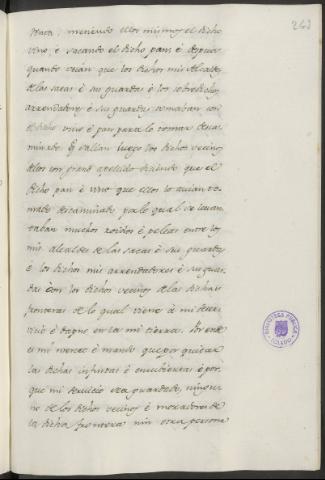 242
Otava, meniendo ellos mismos el dicho
vino, é sacando el dicho pan é despues
quando veían que los dichos mis Alcaldes
de las sacas é sus guardas é los sobredichos
arrendadores é sus guardas tomaban con
el dicho vino é pan para lo tomar desca
minado salían luego los dichos vecinos
dellos con grand apellido diciendo que el
dicho pan é vino que ellos lo avian to
mado descaminado, por lo qual se levan
taban muchos roidos é peleas entre los
mis alcaldes de las sacas é sus guardas
é los dichos mis arrendadores é sus guar
das é con los dichos vecinos de las dichas
fronteras de lo qual viene á mi deser
vicio é dapno en la mi tierra. Por ende
es mi merced é mando que por quitar
las dichas infintas é encubiertas é por
que mi servicio sea guardado, ningu
no de los dichos vecinos é moradores de
la dicha frontera nin otra persona
BIBLIOTECA PUBLICA
TOLEDO